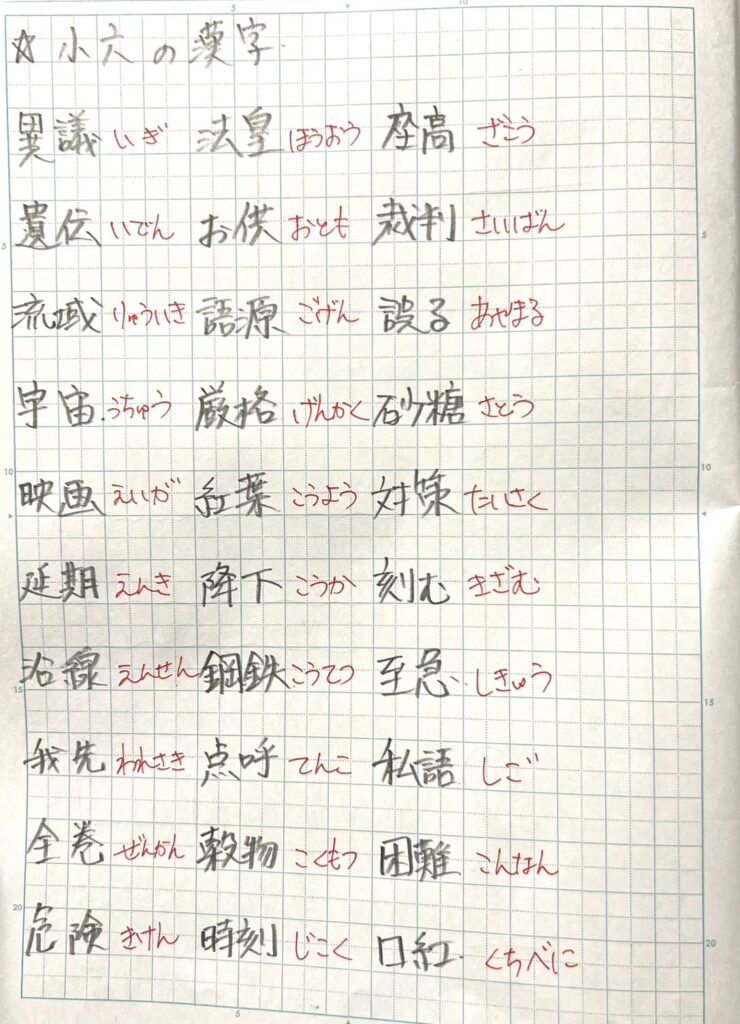 5
10
☆小六の漢字
異議 いぎ 法皇 ほうおう 座高 ざこう
遺伝 いでん お供 おとも 裁判 さいばん
5
5
流域 りゅういき 語源 ごげん 誤る あやまる
宇宙 うちゅう 厳格 げんかく 砂糖 さとう
10
10
映画 えいが 紅葉 こうよう 対策 たいさく
延期 えんき 降下 こうか 刻む きざむ
沿線 えんせん 鋼鉄 こうてつ 至急 しきゅう
15
15
我先 われさき 点呼 てんこ 私語 しご
全巻 ぜんかん 穀物 こくもつ 困難 こんなん
20
20
危険 きけん 時刻 じこく 口紅 くちべに
5